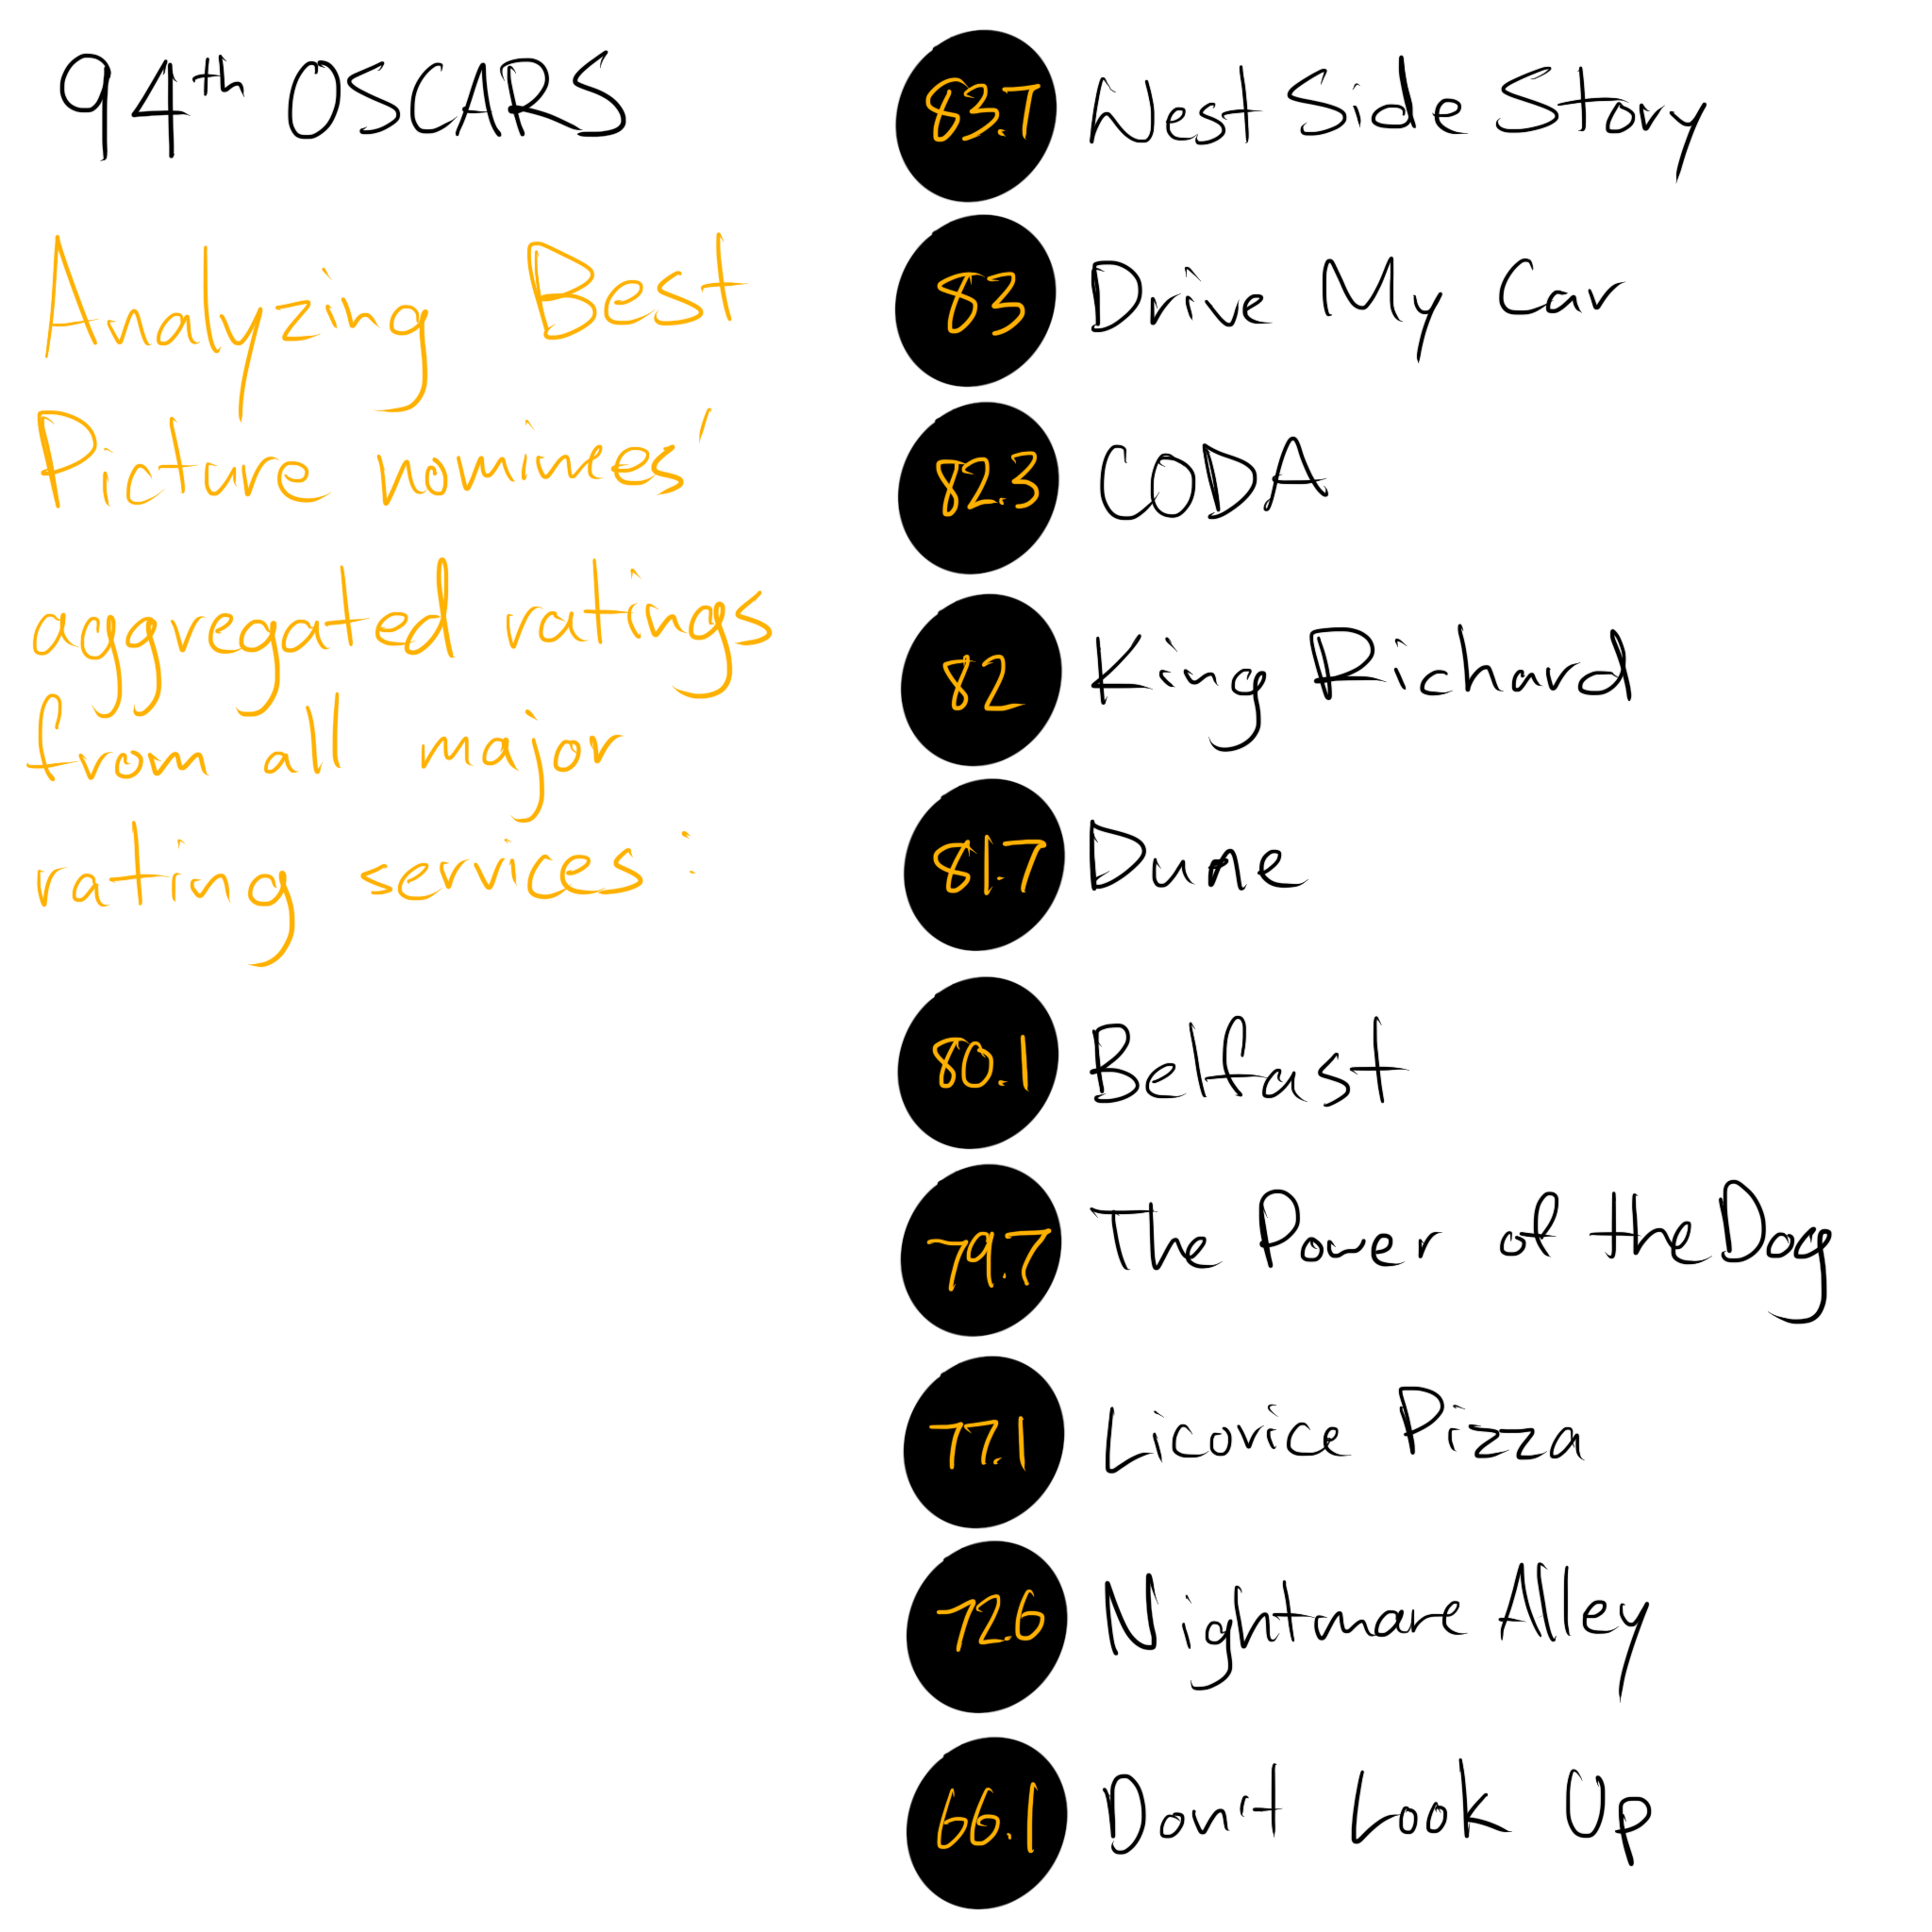 94th OSCARS
Analyzing Best
Picture nominees'
aggregated ratings
from all major
rating services:
83.7 West Side Story
83 Drive My Car
82.3 CODA
82 King Richard
81.7 Dune
80.1 Belfast
79.7 The Power of the Dog
77.1 Licorice Pizza
72.6 Nightmare Alley
66.1 Don't Look Up